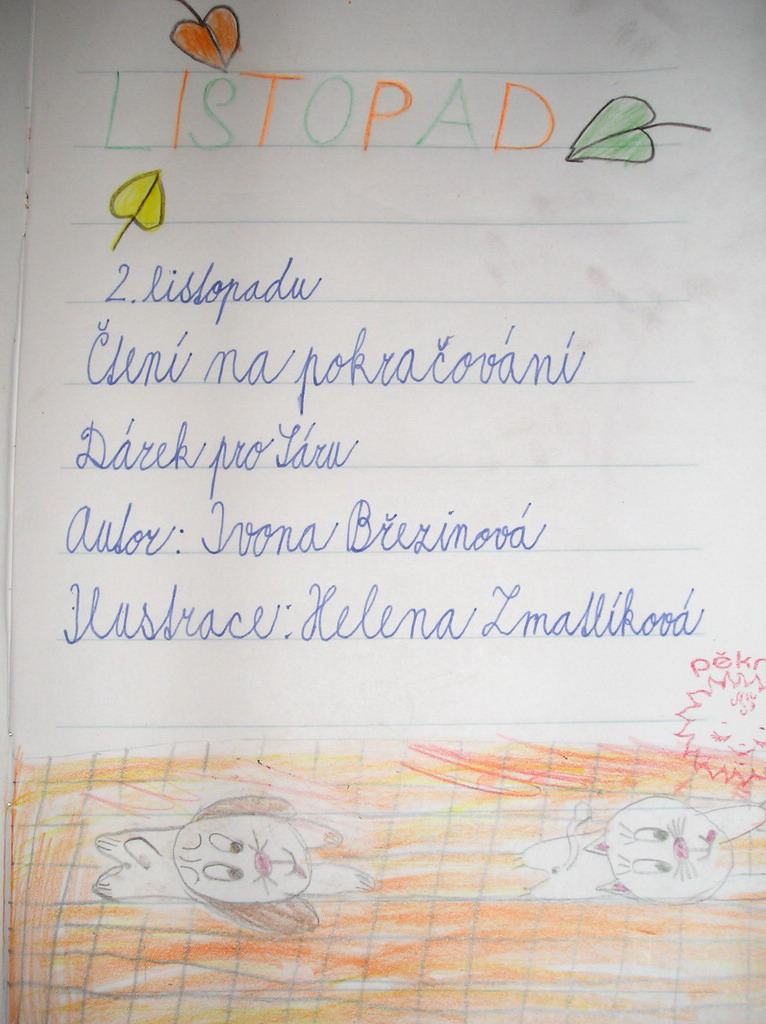 LISTOPAD
2. listopadu
Čtení na pokračování
Dárek pro Sáru
Autor: Ivona Březinová
Ilustrace: Helena Zmatlíková
pěkn